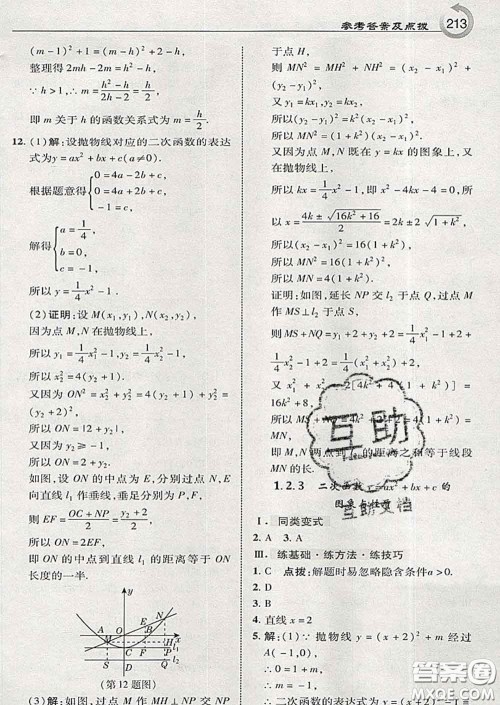 参考答案及点拨 213
(m-1)²+1=(h-m-1)²+1.
整理得2hm-h²=2m-2h.
∵h>1,∴m=\frac{h²-2h}{2h-2}=\frac{h}{2}.
即m关于h的函数关系式为m=\frac{h}{2}.
12. (1)解:设抛物线对应的二次函数的表达
式为y=ax²+bx+c(a≠0).
根据题意得{0=4a-2b+c, 0=4a+2b+c, -1=c,
解得{a=\frac{1}{4}, b=0, c=-1.
所以y=\frac{1}{4}x²-1.
(2)证明:设M(x₁,y₁),N(x₂,y₂).
因为点M,N在抛物线上,
所以y₁=\frac{1}{4}x₁²-1,y₂=\frac{1}{4}x₂²-1.
所以x₂²=4(y₂+1).
又因为ON²=x₂²+y₂²=4(y₂+1)+y₂²=
(y₂+2)²,
所以ON=|2+y₂|.
又因为y₂≥-1,
所以ON=2+y₂.
如图,设ON的中点为E,分别过点N,E
向直线l₁作垂线,垂足为P,F,
则EF=\frac{OC+NP}{2}=\frac{2+y₂}{2}.
所以ON=2EF,
即ON的中点到直线l₁的距离等于ON
长度的一半.
(第12题图)
(3)解:如图,过点M作MH⊥NP交NP
于点H,
则MN²=MH²+NH²=(x₂-x₁)²+
(y₂-y₁)².
又y₁=kx₁,y₂=kx₂,
所以(y₂-y₁)²=k²(x₂-x₁)².
所以MN²=(1+k²)(x₂-x₁)².
又因为点M,N既在y=kx的图象上,又
在抛物线上,
所以kx=\frac{1}{4}x²-1,即x²-4kx-4=0.
所以x=\frac{4k±\sqrt{16k²+16}}{2}=2k±2\sqrt{1+k²}.
所以(x₂-x₁)²=16(1+k²).
所以MN²=16(1+k²)².
所以MN=4(1+k²).
证明:如图,延长NP交l₂于点Q,过点M
作MS⊥l₂于点S,
则MS+NQ=y₁+2+y₂+2=\frac{1}{4}x₁²-
1+\frac{1}{4}x₂²-1+4=\frac{1}{4}(x₁²+x₂²)+2.
又x₁²+x₂²=2[4k²+4(1+k²)]=
16k²+8,
所以MS+NQ=4k²+2+2=4(1+k²)=MN.
即M,N两点到l₂的距离之和等于线段
MN的长.
1.2.3 二次函数y=ax²+bx+c的
Ⅰ. 同类变式
2. A 3. A
Ⅲ. 练基础·练方法·练技巧
1. C 点拨:解题时易忽略隐含条件a>0.
2. D
3. D
4. 直线x=2
5. 解:(1)∵抛物线y=(x+2)²+m经过
点A(-1,0),
∴0=1+m.∴m=-1.
∴二次函数的表达式为y=(x+2)²-
互助
互助文档
答案圈
MXQE.COM